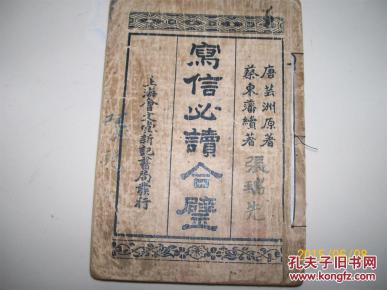 唐芸洲原著
蔡東藩續著
張瑞先
寫信必讀合璧
上海會文堂新記書局發行
2015/06/08
孔夫子旧书网